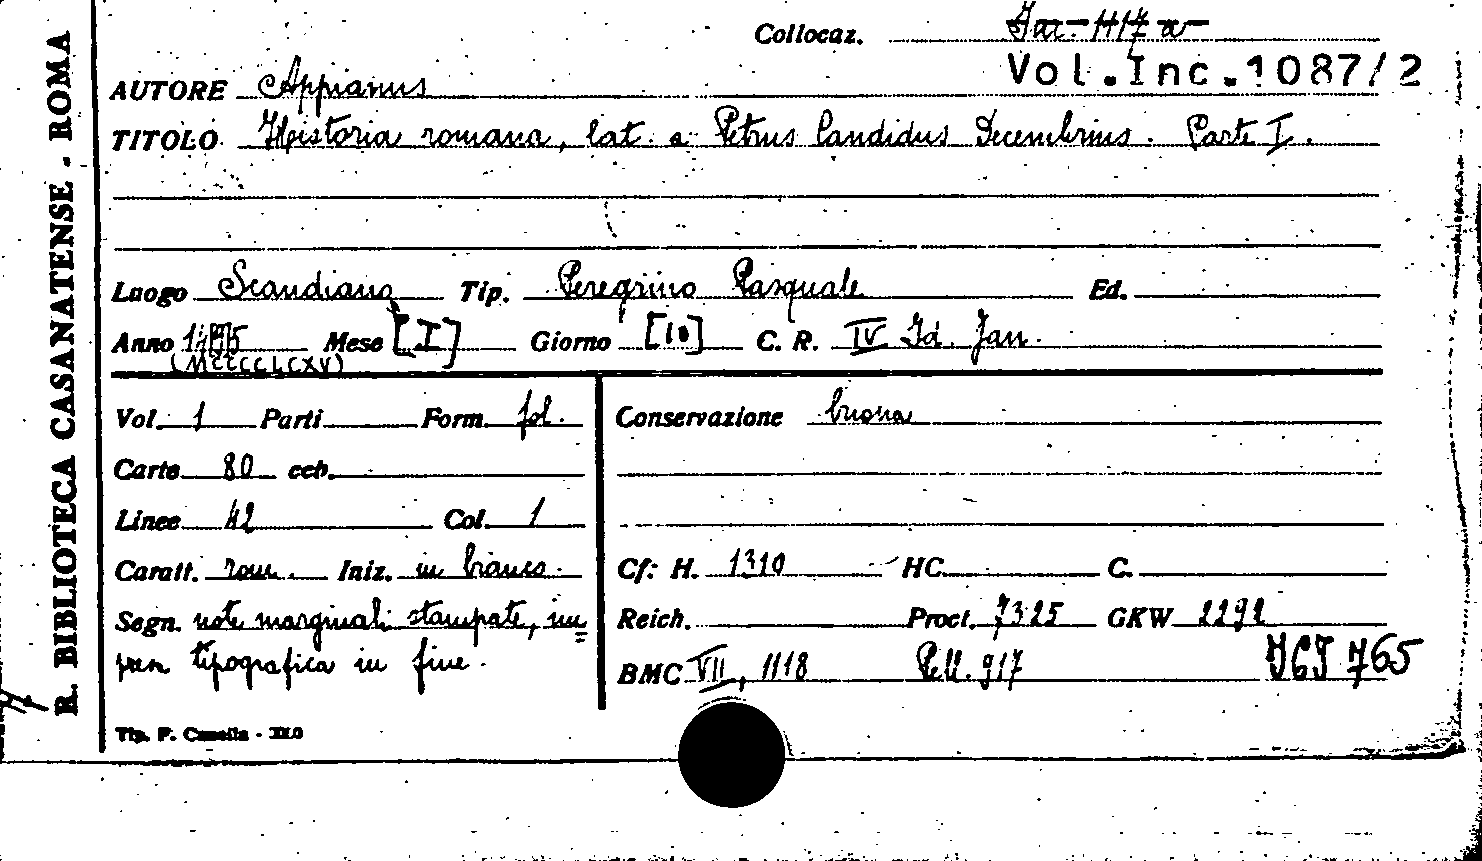 R. BIBLIOTECA CASANATENSE - ROMA
Collocaz. Inc. 1117 a
Vol.Inc.1087/2
AUTORE Appianus
TITOLO Historia romana, lat. a Petrus Candidus Decembrius. Parte I.
Luogo Scandiano Tip. Peregrino Pasquale Ed.
Anno 1495 Mese [I] Giorno [10] C. R. IV Id. Jan.
(MCCCCLCXV)
Vol. 1 Parti Form. fol. Conservazione buona
Carte 80 ccb.
Linee 42 Col. 1
Caratt. rom. Iniz. in bianco. Cf: H. 1310 HC. C.
Segn. note marginali stampate, im= Reich. Proct. 7325 GKW 2292
pren tipografica in fine. BMC VII, 1118 Pell. 917 IGI 765
Tip. F. Canella - XI.0